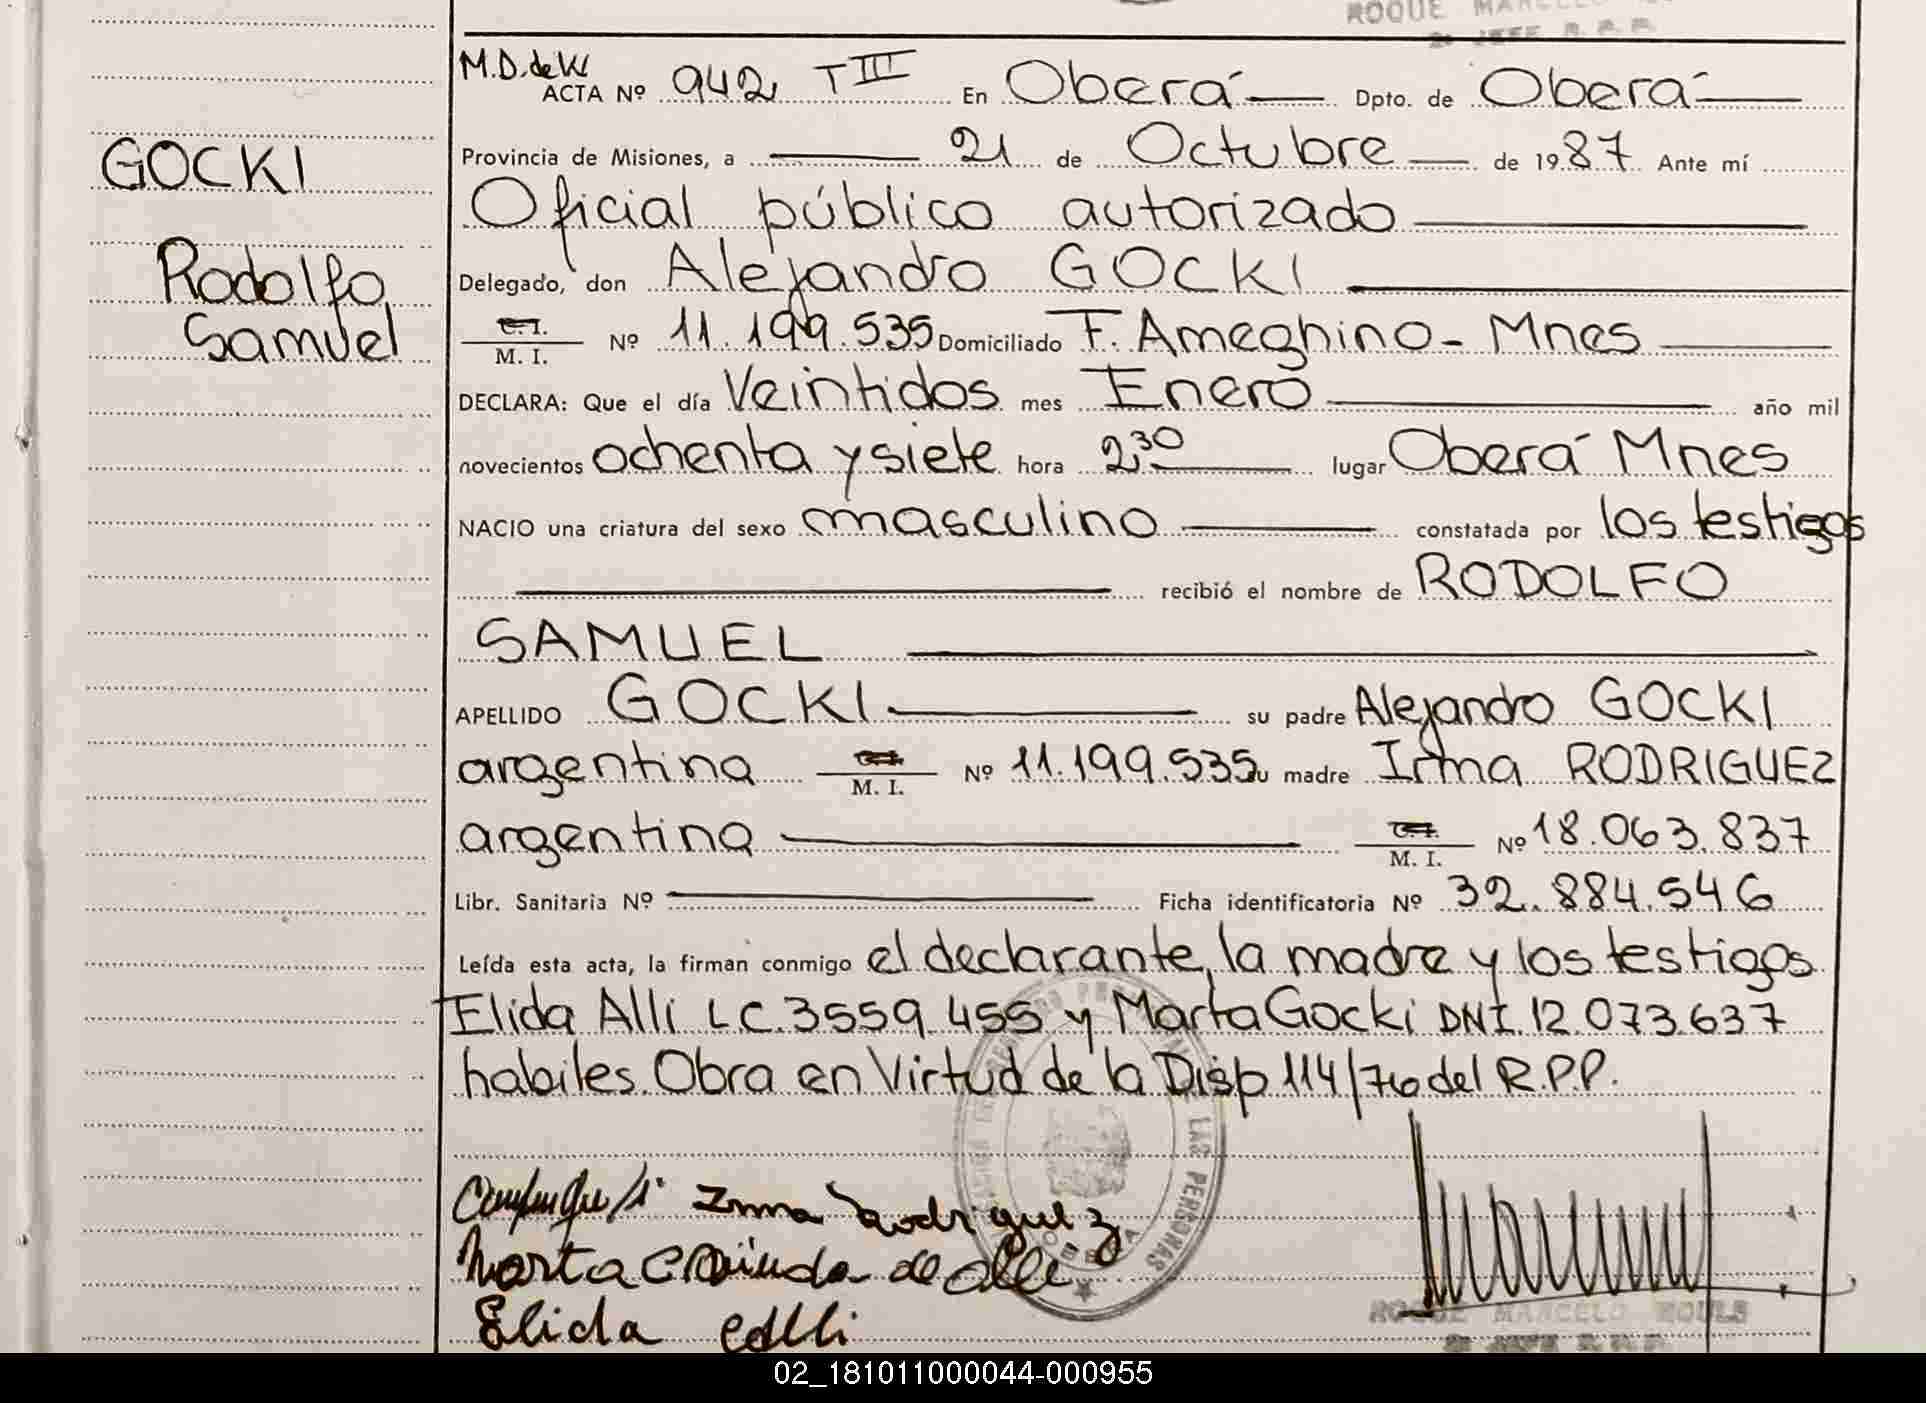 ROQUE MARCELO
2º JEFE R.P.P.
M.D. de W
ACTA Nº 942 T III En Oberá Dpto. de Oberá
Provincia de Misiones, a 21 de Octubre de 1987. Ante mí
GOCKI
Oficial público autorizado
Rodolfo
Delegado, don Alejandro GOCKI
Samuel
C.I. M. I. Nº 11.199.535 Domiciliado F. Ameghino - Mnes
DECLARA: Que el día Veintidos mes Enero año mil
novecientos ochenta y siete hora 2,30 lugar Oberá Mnes
NACIO una criatura del sexo masculino constatada por los testigos
recibió el nombre de RODOLFO
SAMUEL
APELLIDO GOCKI su padre Alejandro GOCKI
argentina C.I. M. I. Nº 11.199.535 su madre Irma RODRIGUEZ
argentina C.I. M. I. Nº 18.063.837
Libr. Sanitaria Nº Ficha identificatoria Nº 32.884.546
Leída esta acta, la firman conmigo el declarante, la madre y los testigos
Elida Alli LC. 3559.455 y Marta Gocki DNI. 12.073.637
habiles. Obra en Virtud de la Disp 114/76 del R.P.P.
LAS PERSONAS
Irma Rodriguez
Marta de Alli
Elida Alli
ROQUE MARCELO
2º JEFE R.P.P.
02_181011000044-000955